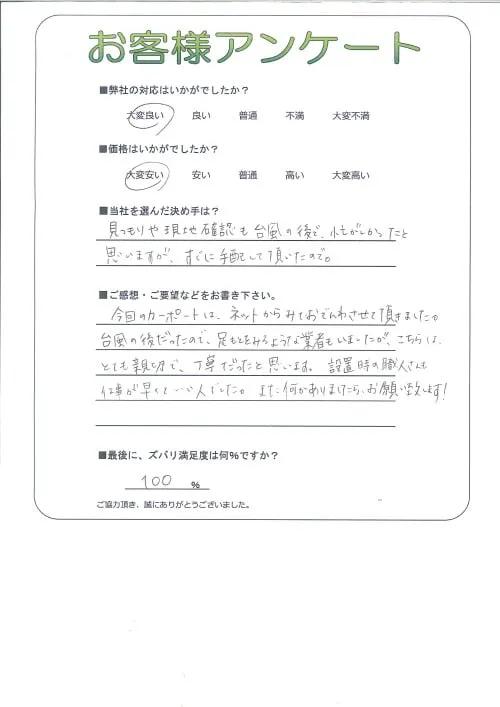 お客様アンケート
■弊社の対応はいかがでしたか？
大変良い 良い 普通 不満 大変不満
■価格はいかがでしたか？
大変安い 安い 普通 高い 大変高い
■当社を選んだ決め手は？
見つもりや現地確認も台風の後で、忙がしかったと
思いますが、すぐに手配して頂いたので。
■ご感想・ご要望などをお書き下さい。
今回のカーポートは、ネットからみておでんわさせて頂きました。
台風の後だったので、足もとをみるような業者もいましたが、こちらは、
とても親切で、丁寧だったと思います。設置時の職人さんも
仕事が早くていい人でした。また何かありましたら、お願い致します！
■最後に、ズバリ満足度は何％ですか？
100 ％
ご協力頂き、誠にありがとうございました。